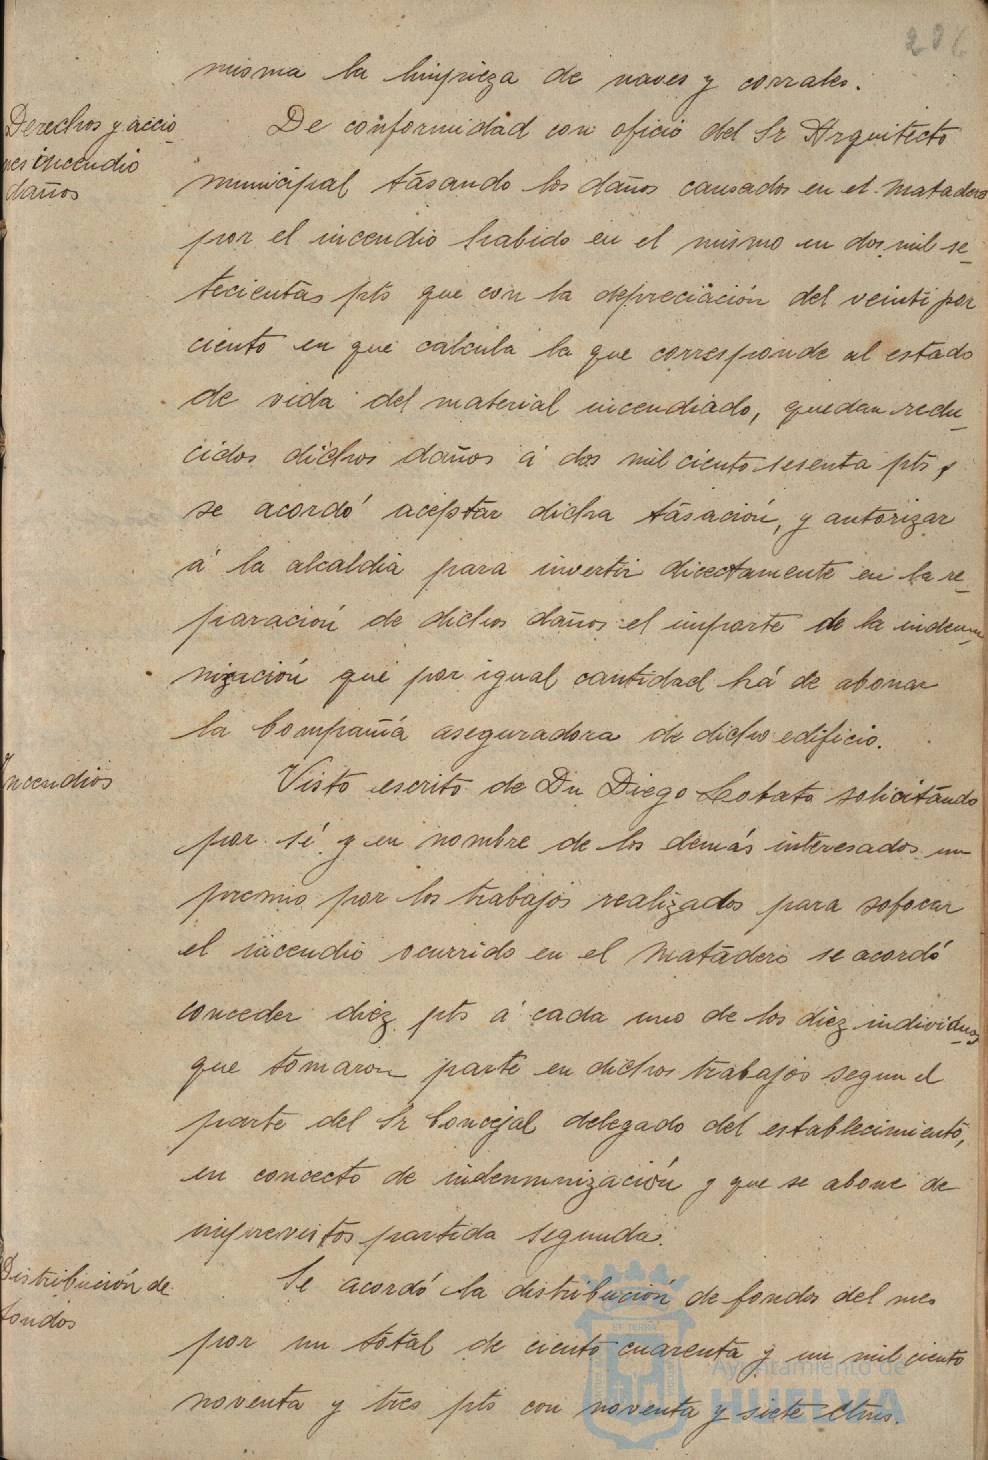 206
misma la limpieza de naves y corrales.
Derechos y accio-
nes incendio
daños
De conformidad con oficio del Sr Arquitecto
municipal tasando los daños causados en el Matadero
por el incendio habido en el mismo en dos mil se-
tecientas pts que con la depreciación del veinti por
ciento en que calcula la que corresponde al estado
de vida del material incendiado, quedan redu-
cidos dichos daños á dos mil ciento sesenta pts,
se acordó aceptar dicha tasación, y autorizar
á la alcaldia para invertir directamente en la re-
paración de dichos daños el importe de la indem-
nización que por igual cantidad há de abonar
la Compañia aseguradora de dicho edificio.
Incendios
Visto escrito de Dn Diego Lobato solicitando
por sí y en nombre de los demás interesados un
premio por los trabajos realizados para sofocar
el incendio ocurrido en el Matadero se acordó
conceder diez pts á cada uno de los diez individuos
que tomaron parte en dichos trabajos segun el
parte del Sr Concejal delegado del establecimiento,
en concecto de indemnización y que se abone de
imprevistos partida segunda.
Distribución de
fondos
Se acordó la distribución de fondos del mes
por un total de ciento cuarenta y un mil ciento
noventa y tres pts con noventa y siete ctms.
Ayuntamiento de
HUELVA